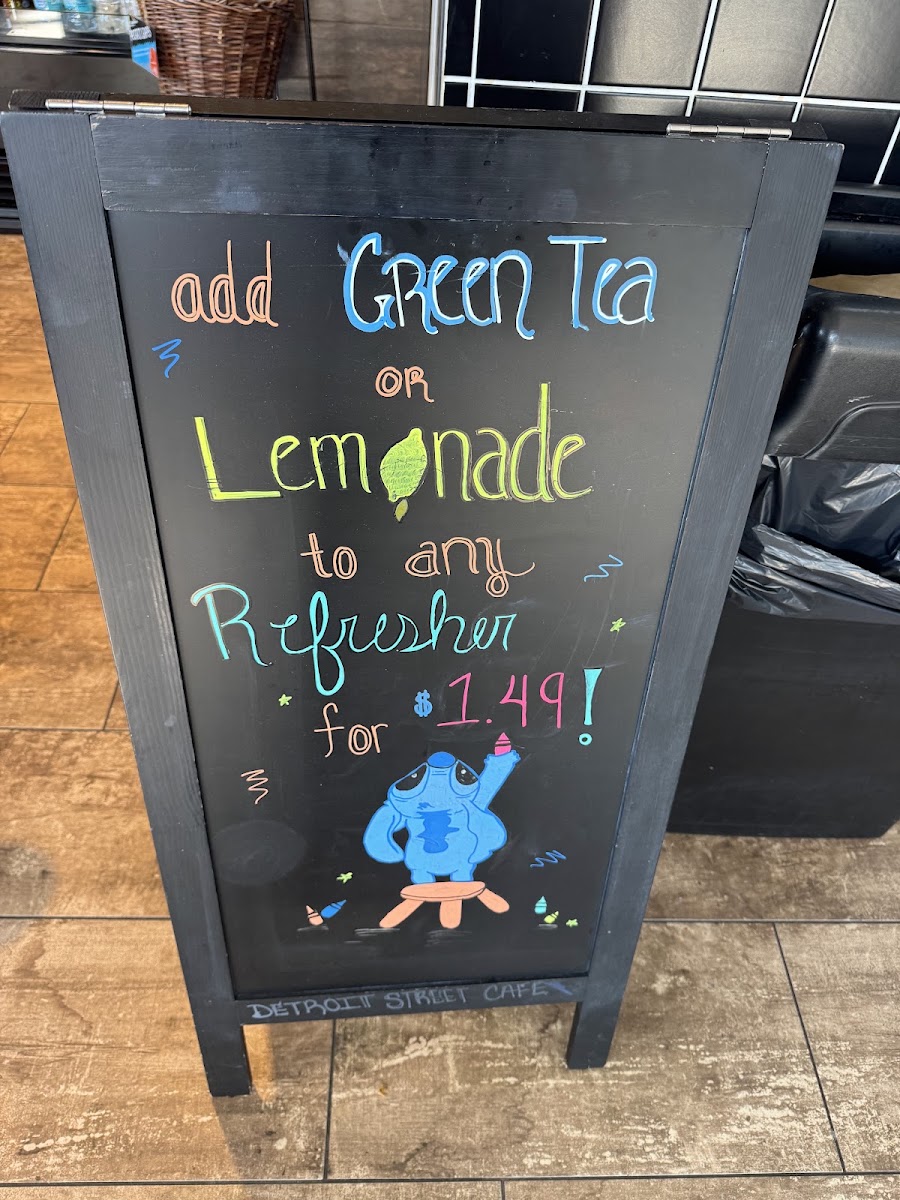 add GREEN Tea
OR
Lemonade
to any
Refresher
for $1.49!
DETROIT STREET CAFE